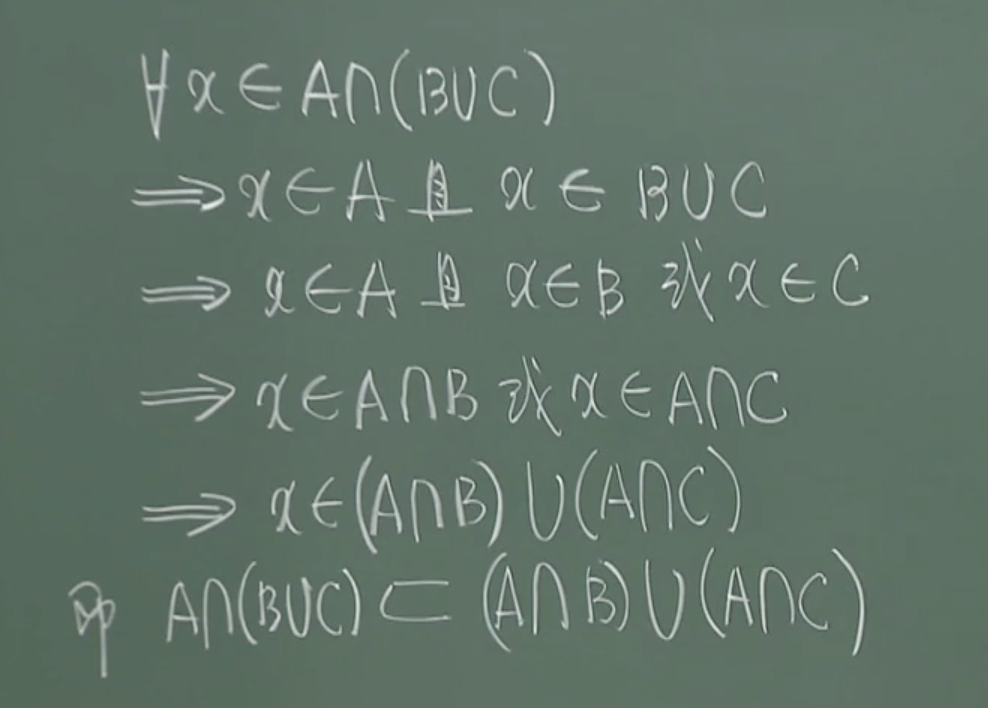 ∀x∈A∩(B∪C)
⟹x∈A且 x∈B∪C
⟹ x∈A且 x∈B 或x∈C
⟹x∈A∩B或x∈A∩C
⟹ x∈(A∩B)∪(A∩C)
即 A∩(B∪C)⊂(A∩B)∪(A∩C)